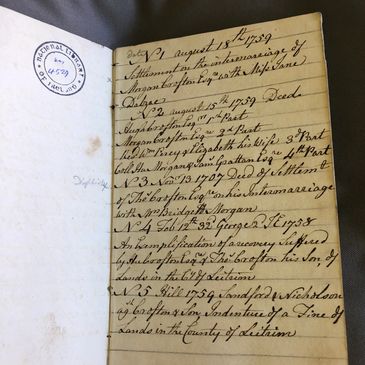 NATIONAL LIBRARY
OF IRELAND
4529
date
No 1 august 18th 1759
Settlement on the intermarriage of
Morgan Crofton Esqr with Miss Jane
No 2 august 15th 1759 Deed
Hugh Crofton Esqr 1st Part
Morgan Crofton Esqr 2d Part
Wm Percy & Elizabeth his Wife 3d Part
Col. H. Morgan & Saml Grattan Esqrs 4th Part
No 3 Novr 13 1707 Deed of Settlemt
of Thos Crofton Esqr on his Intermarriage
with Mrs Bridgett Morgan
No 4 Feb 12th 32 George 2d 1758
An Exemplification of a recovery Suffered
by H. Crofton Esqr & Thos Crofton his Son, of
Lands in the Co of Leitrim
No 5 Hill 1759 Sandford & Nicholson
agt Crofton & Son, Indenture of a Fine of
Lands in the County of Leitrim